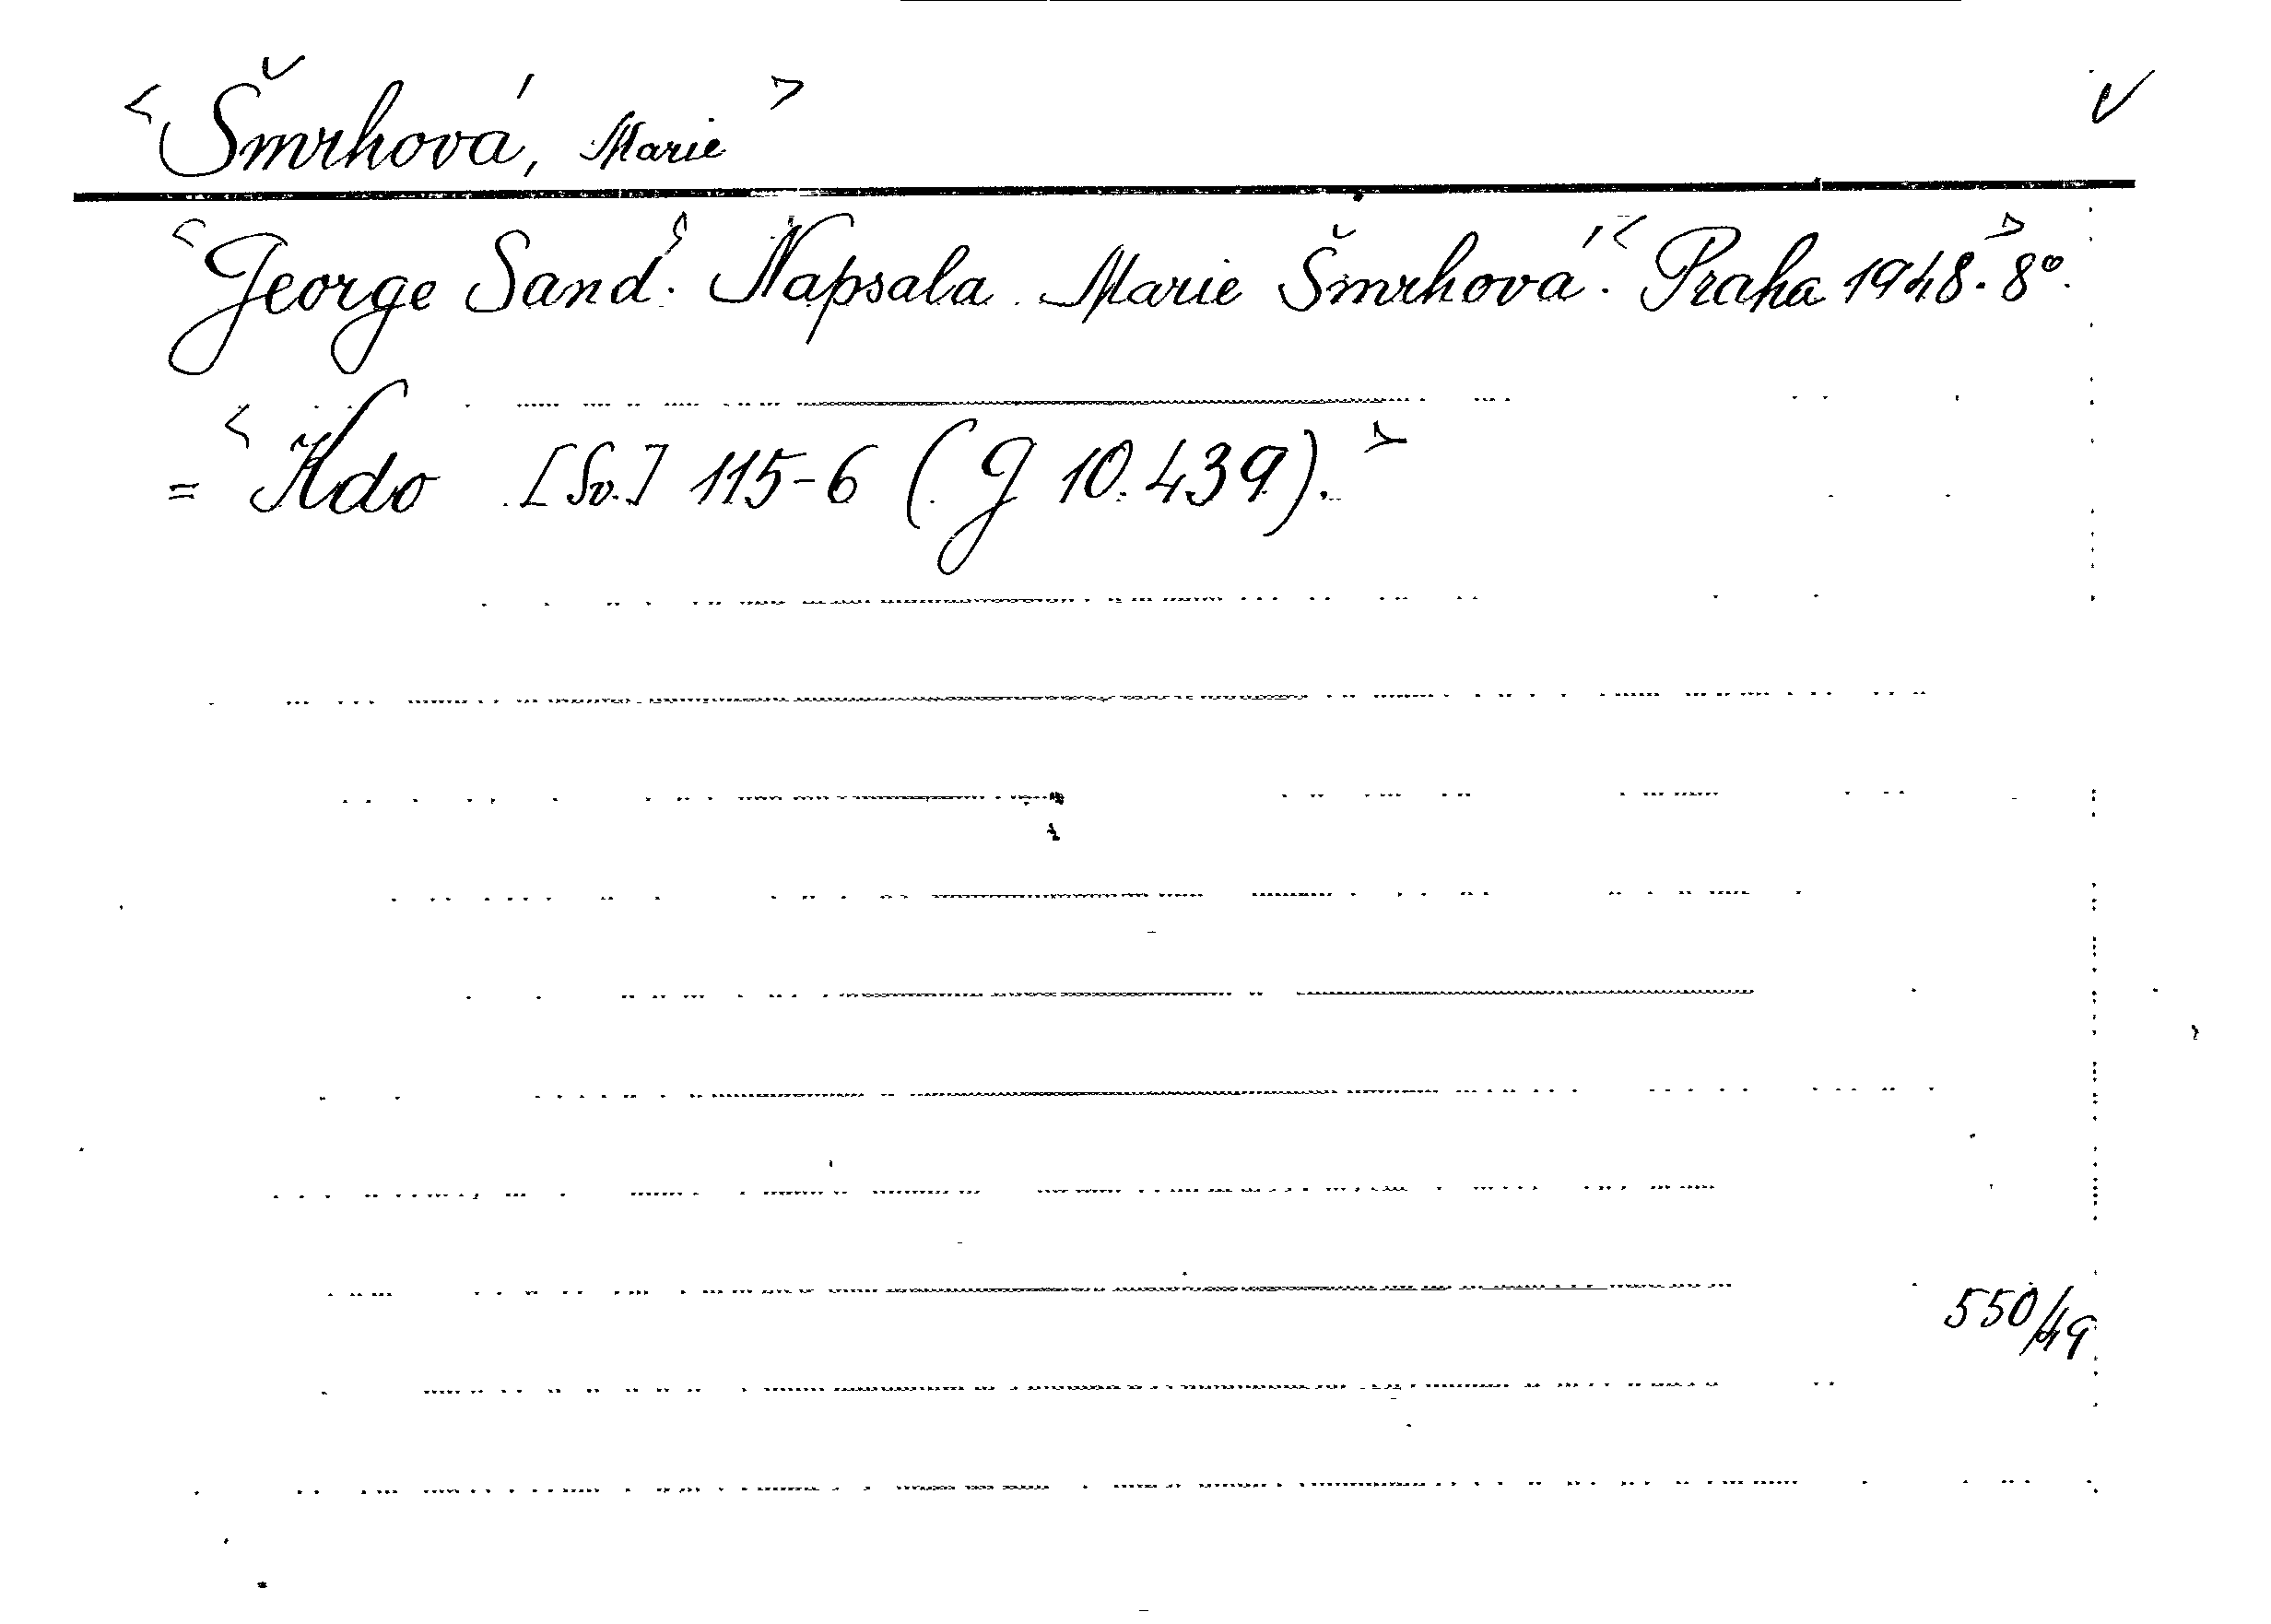 <Šmrhová, Marie> ✓
<George Sand. Napsala Marie Šmrhová. <Praha 1948.> 8°.
= <Kdo [Sv.] 115-6 (J 10.439).>
550/49